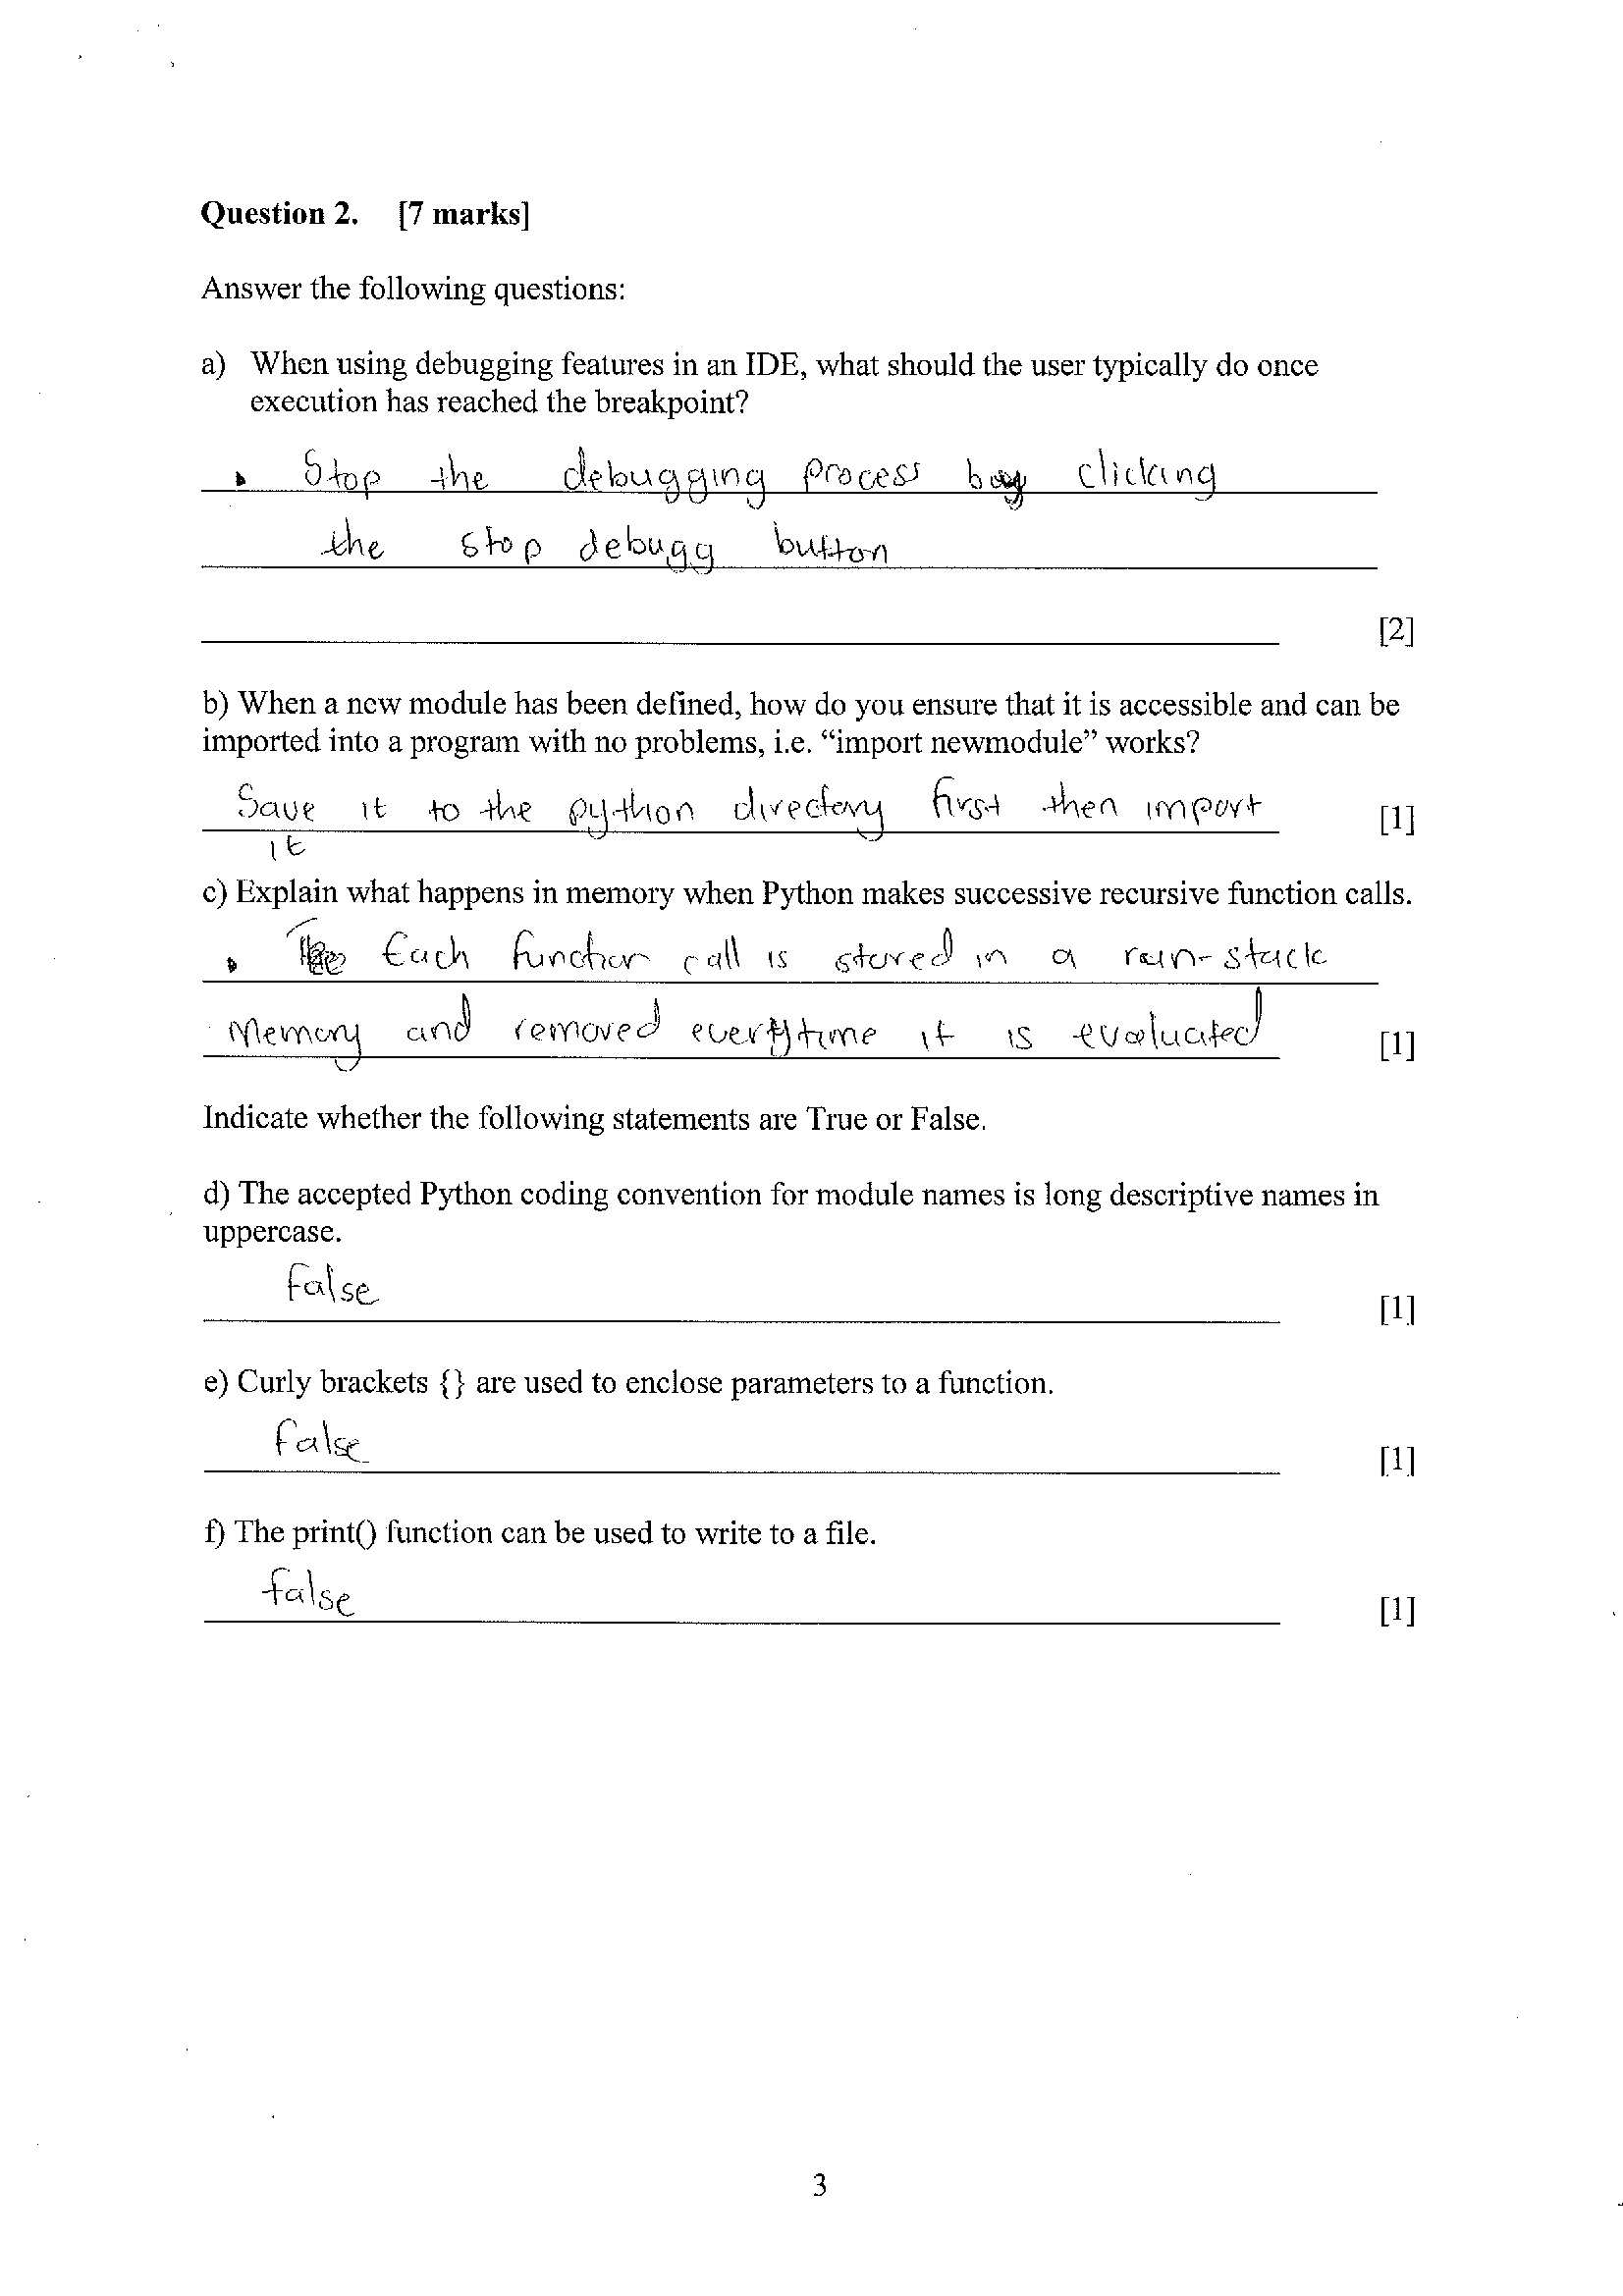 Question 2. [7 marks]
Answer the following questions:
a) When using debugging features in an IDE, what should the user typically do once
execution has reached the breakpoint?
Stop the debugging process by clicking
the stop debugg button
[2]
b) When a new module has been defined, how do you ensure that it is accessible and can be
imported into a program with no problems, i.e. “import newmodule” works?
Save it to the python directory first then import [1]
it
c) Explain what happens in memory when Python makes successive recursive function calls.
Each function call is stored in a run-stack
Memory and removed everytime it is evaluated [1]
Indicate whether the following statements are True or False.
d) The accepted Python coding convention for module names is long descriptive names in
uppercase.
False
[1]
e) Curly brackets {} are used to enclose parameters to a function.
False
[1]
f) The print() function can be used to write to a file.
false
[1]
3